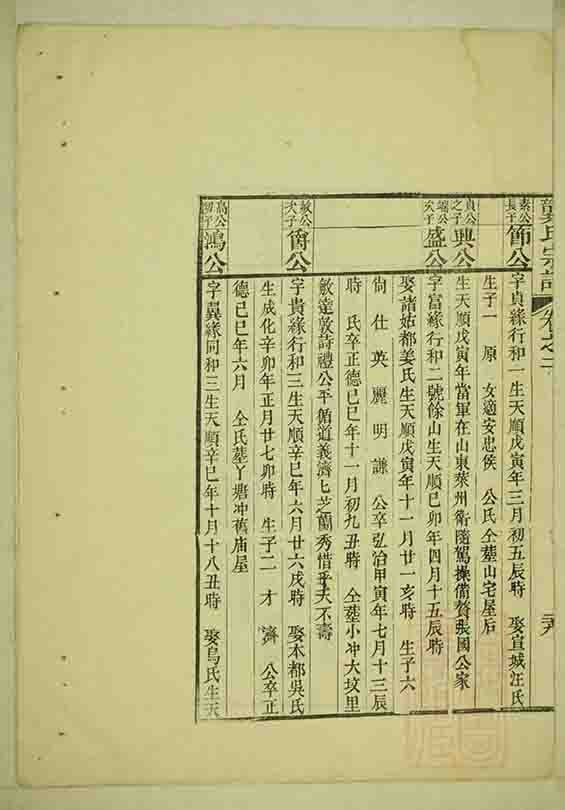 氏宗譜 卷之二
素公長子 節公 字貞緣行和一生天順戊寅年三月初五辰時 娶宣城汪氏
生子一 原 女適安忠侯 公氏仝塟山宅屋后
貞公之子 興公 生天順戊寅年當軍在山東萊州衛隨駕操備贅張國公家
端公次子 盛公 字富緣行和二號餘山生天順己卯年四月十五辰時
娶諸姑都姜氏生天順戊寅年十一月廿一亥時 生子六
尚 仕 英 麗 明 謙 公卒弘治甲寅年七月十三辰
時 氏卒正德己巳年十一月初九丑時 仝塟小冲大坟里
敏公次子 爵公 敏達敦詩禮公平循道義濟匕芝蘭秀惜乎天不壽
字貴緣行和三生天順辛巳年六月廿六戌時 娶本都吳氏
生成化辛卯年正月廿七卯時 生子二 才 濟 公卒正
德己巳年六月 仝氏塟丫塘冲舊庙屋
高公初子 鴻公 字巽緣同和三生天順辛巳年十月十八丑時 娶烏氏生天